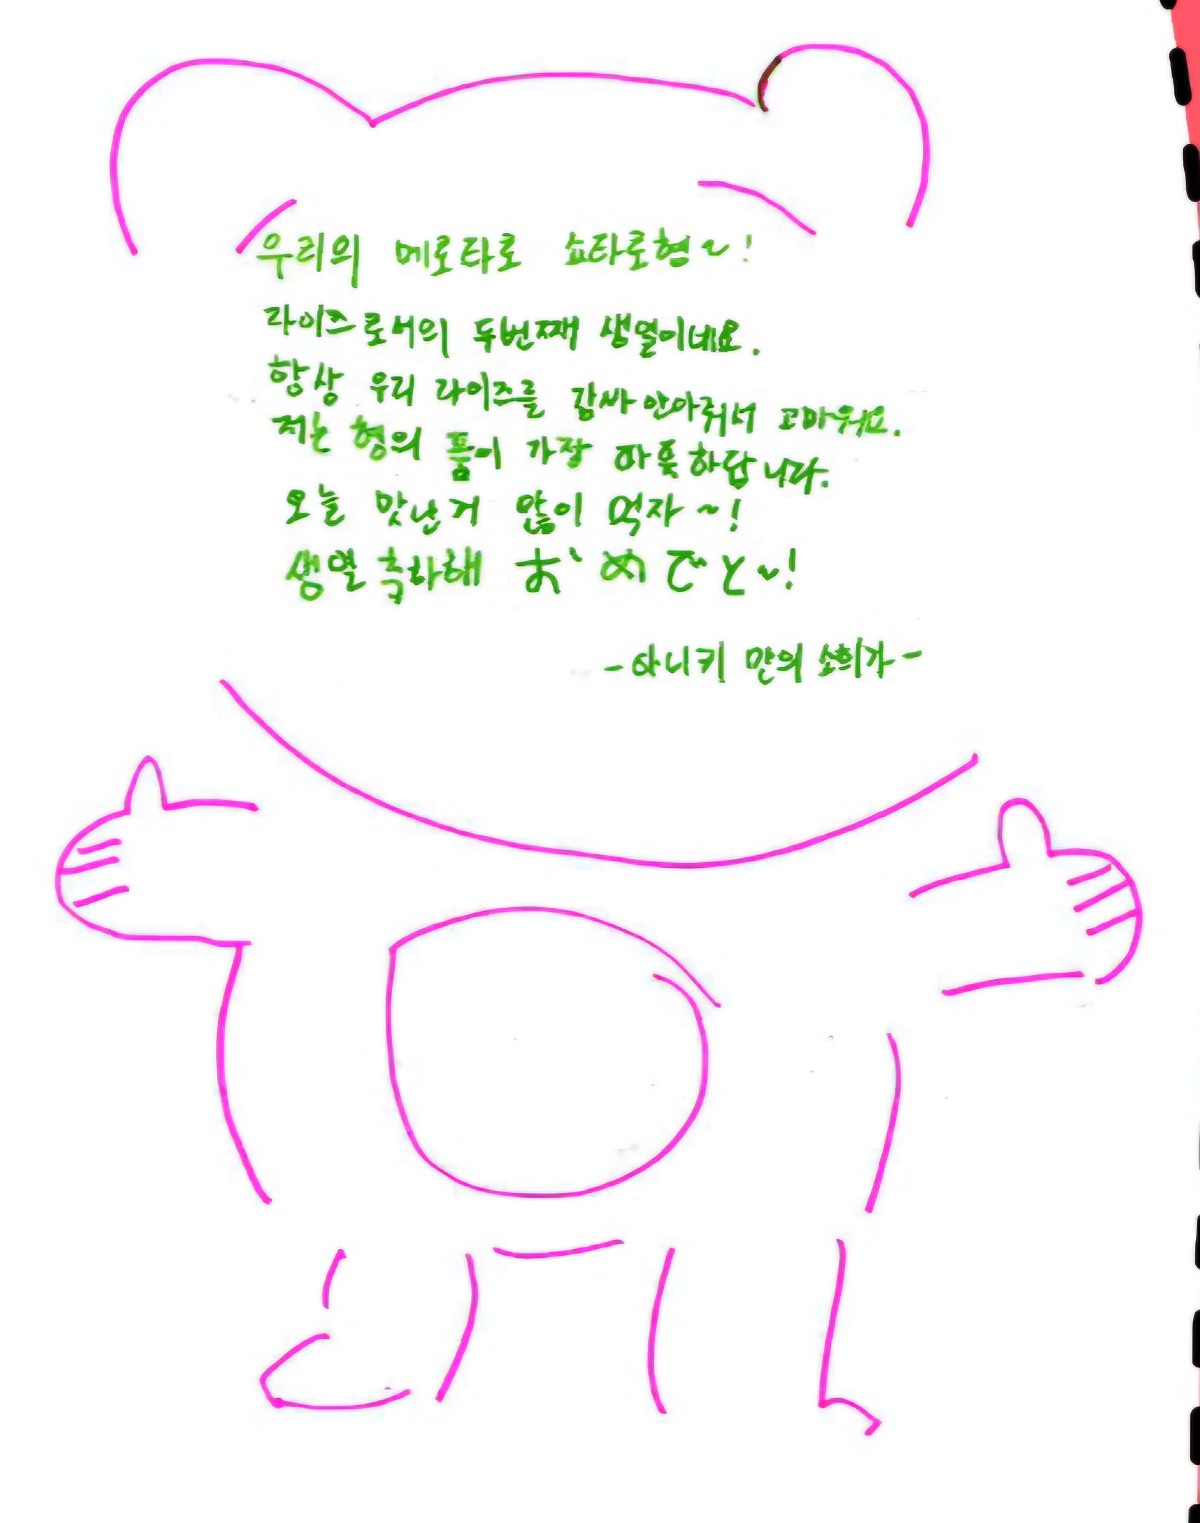 우리의 메로타로 쇼타로형~!
라이즈로서의 두번째 생일이네요.
항상 우리 라이즈를 감싸 안아줘서 고마워요.
저는 형의 품이 가장 따뜻하답니다.
오늘 맛난거 많이 먹자~!
생일 축하해 おめでと~!
-아니키 만의 소희가-